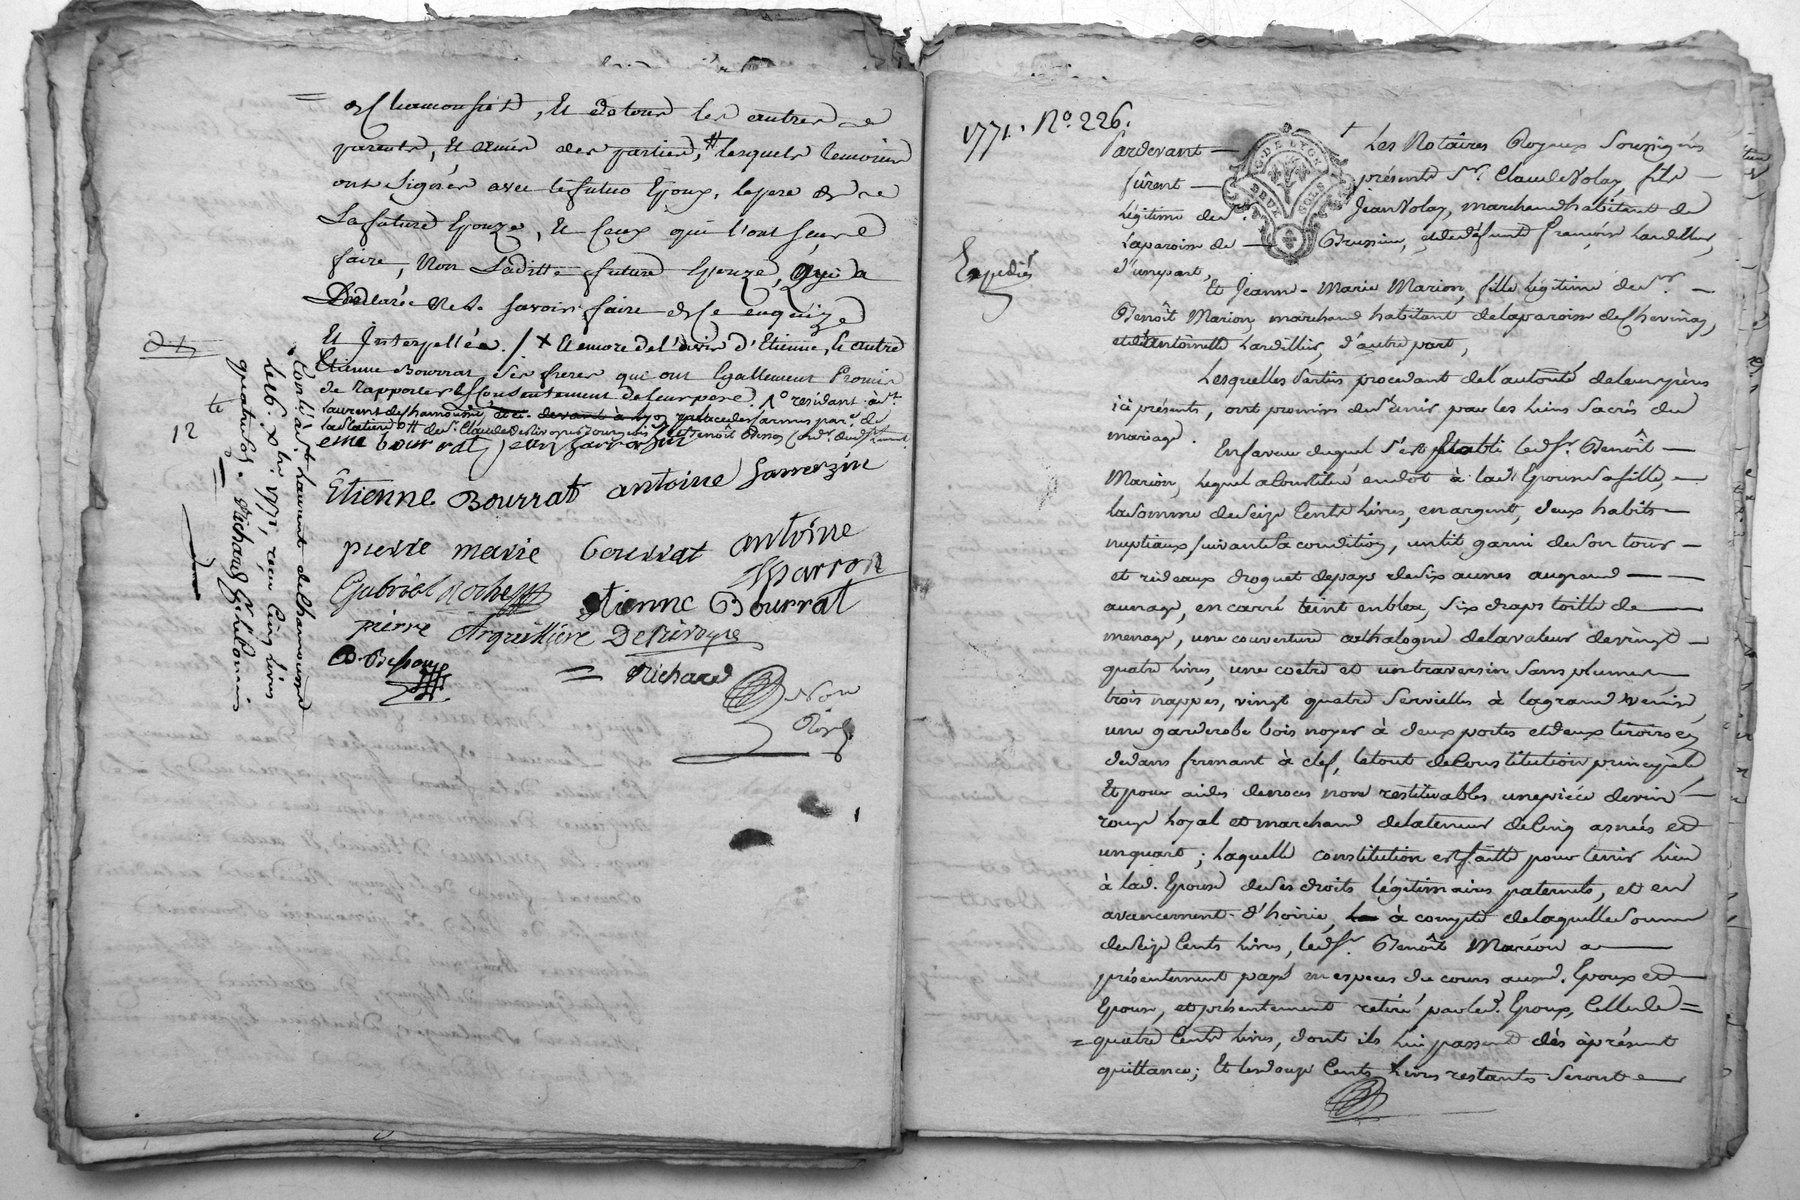 de Chamousset, Et de tous les autres
parents, Et amis des parties, # lesquels temoins
ont Signés avec le futur Epoux, le pere de
La future Epouze, Et Ceux qui l'ont sçeu
faire, Non Laditte future Epouze, Qui a
Declarée ne le savoir faire de Ce enquize
Et Interpellée. /X Et encore de l'avis d'Etienne, & autre
Etienne Bourrat, ses freres qui ont Egallement Promis
de Rapporter le Consentement de leur pere.
Laurent de Chamousset
eme bourrat
Etienne Bourrat antoine Sarrerzin
pierre marie bourrat antoine
Sparron
Gabriel Etienne Bourrat
pierre Arquilliere Derivoyre
Richard
Non
Rose
Controlé à St Laurent de Chamousset
Le 16. Xbre 1771, reçu Cinq livres
quatre sols. Richard
12
1771. No. 226.
Expedié
G. DE LYON
DEUX SOLS
Pardevant Les Notaires Royaux Soussignés
fûrent présents Sr. Claude Volay, fils
légitime de Sr Jean Volay, marchand habitant de
la paroisse de Brussieu, et de défunte françoise Lardillier,
d'une part,
Et Jeanne-Marie Marion, fille légitime de Sr.
Benoît Marion, marchand habitant de la paroisse de Chevinay,
et d'Antoinette Lardillier, d'autre part,
Lesquelles Parties procedant de l'autorité de leurs pères
ici présents, ont promis de s'unir par les liens Sacrés du
mariage.
En faveur duquel S'est Etabli led. Sr. Benoît
Marion, lequel a Constitué en dot à lad. Epouse Sa fille,
la Somme de Seize Cents Livres, en argent, deux habits
nuptiaux suivant la condition, un lit garni de Son tour
et rideaux droguet de pays de Six aunes au grand
aunage, en carré teint en bleu, Six draps toille de
menage, une couverture cathalogne de la valeur de vingt
quatre livres, une coetre et un traversin Sans plumes
trois nappes, vingt quatre Serviettes à la grand Venise,
une garderobe bois noyer à deux portes et deux tiroirs en
dedans fermant à clef, le tout de Constitution principale
Et pour aides de noces non restituables une pièce de vin
rouge loyal et marchand de la teneur de Cinq asnées et
un quart; laquelle constitution est faitte pour tenir lieu
à lad. Epouse de Ses droits légitimaires paternels, et en
avancement d'hoirie, à compte de laquelle Somme
de Seize Cents Livres, led. Sr. Benoît Marion a
présentement payé en especes du cours auxd. Epoux et
Epouse, et présentement retiré par led. Epoux, Celle de
quatre Cents livres, dont ils lui passent dès à présent
quittance; Et les douze Cents livres restants Seront